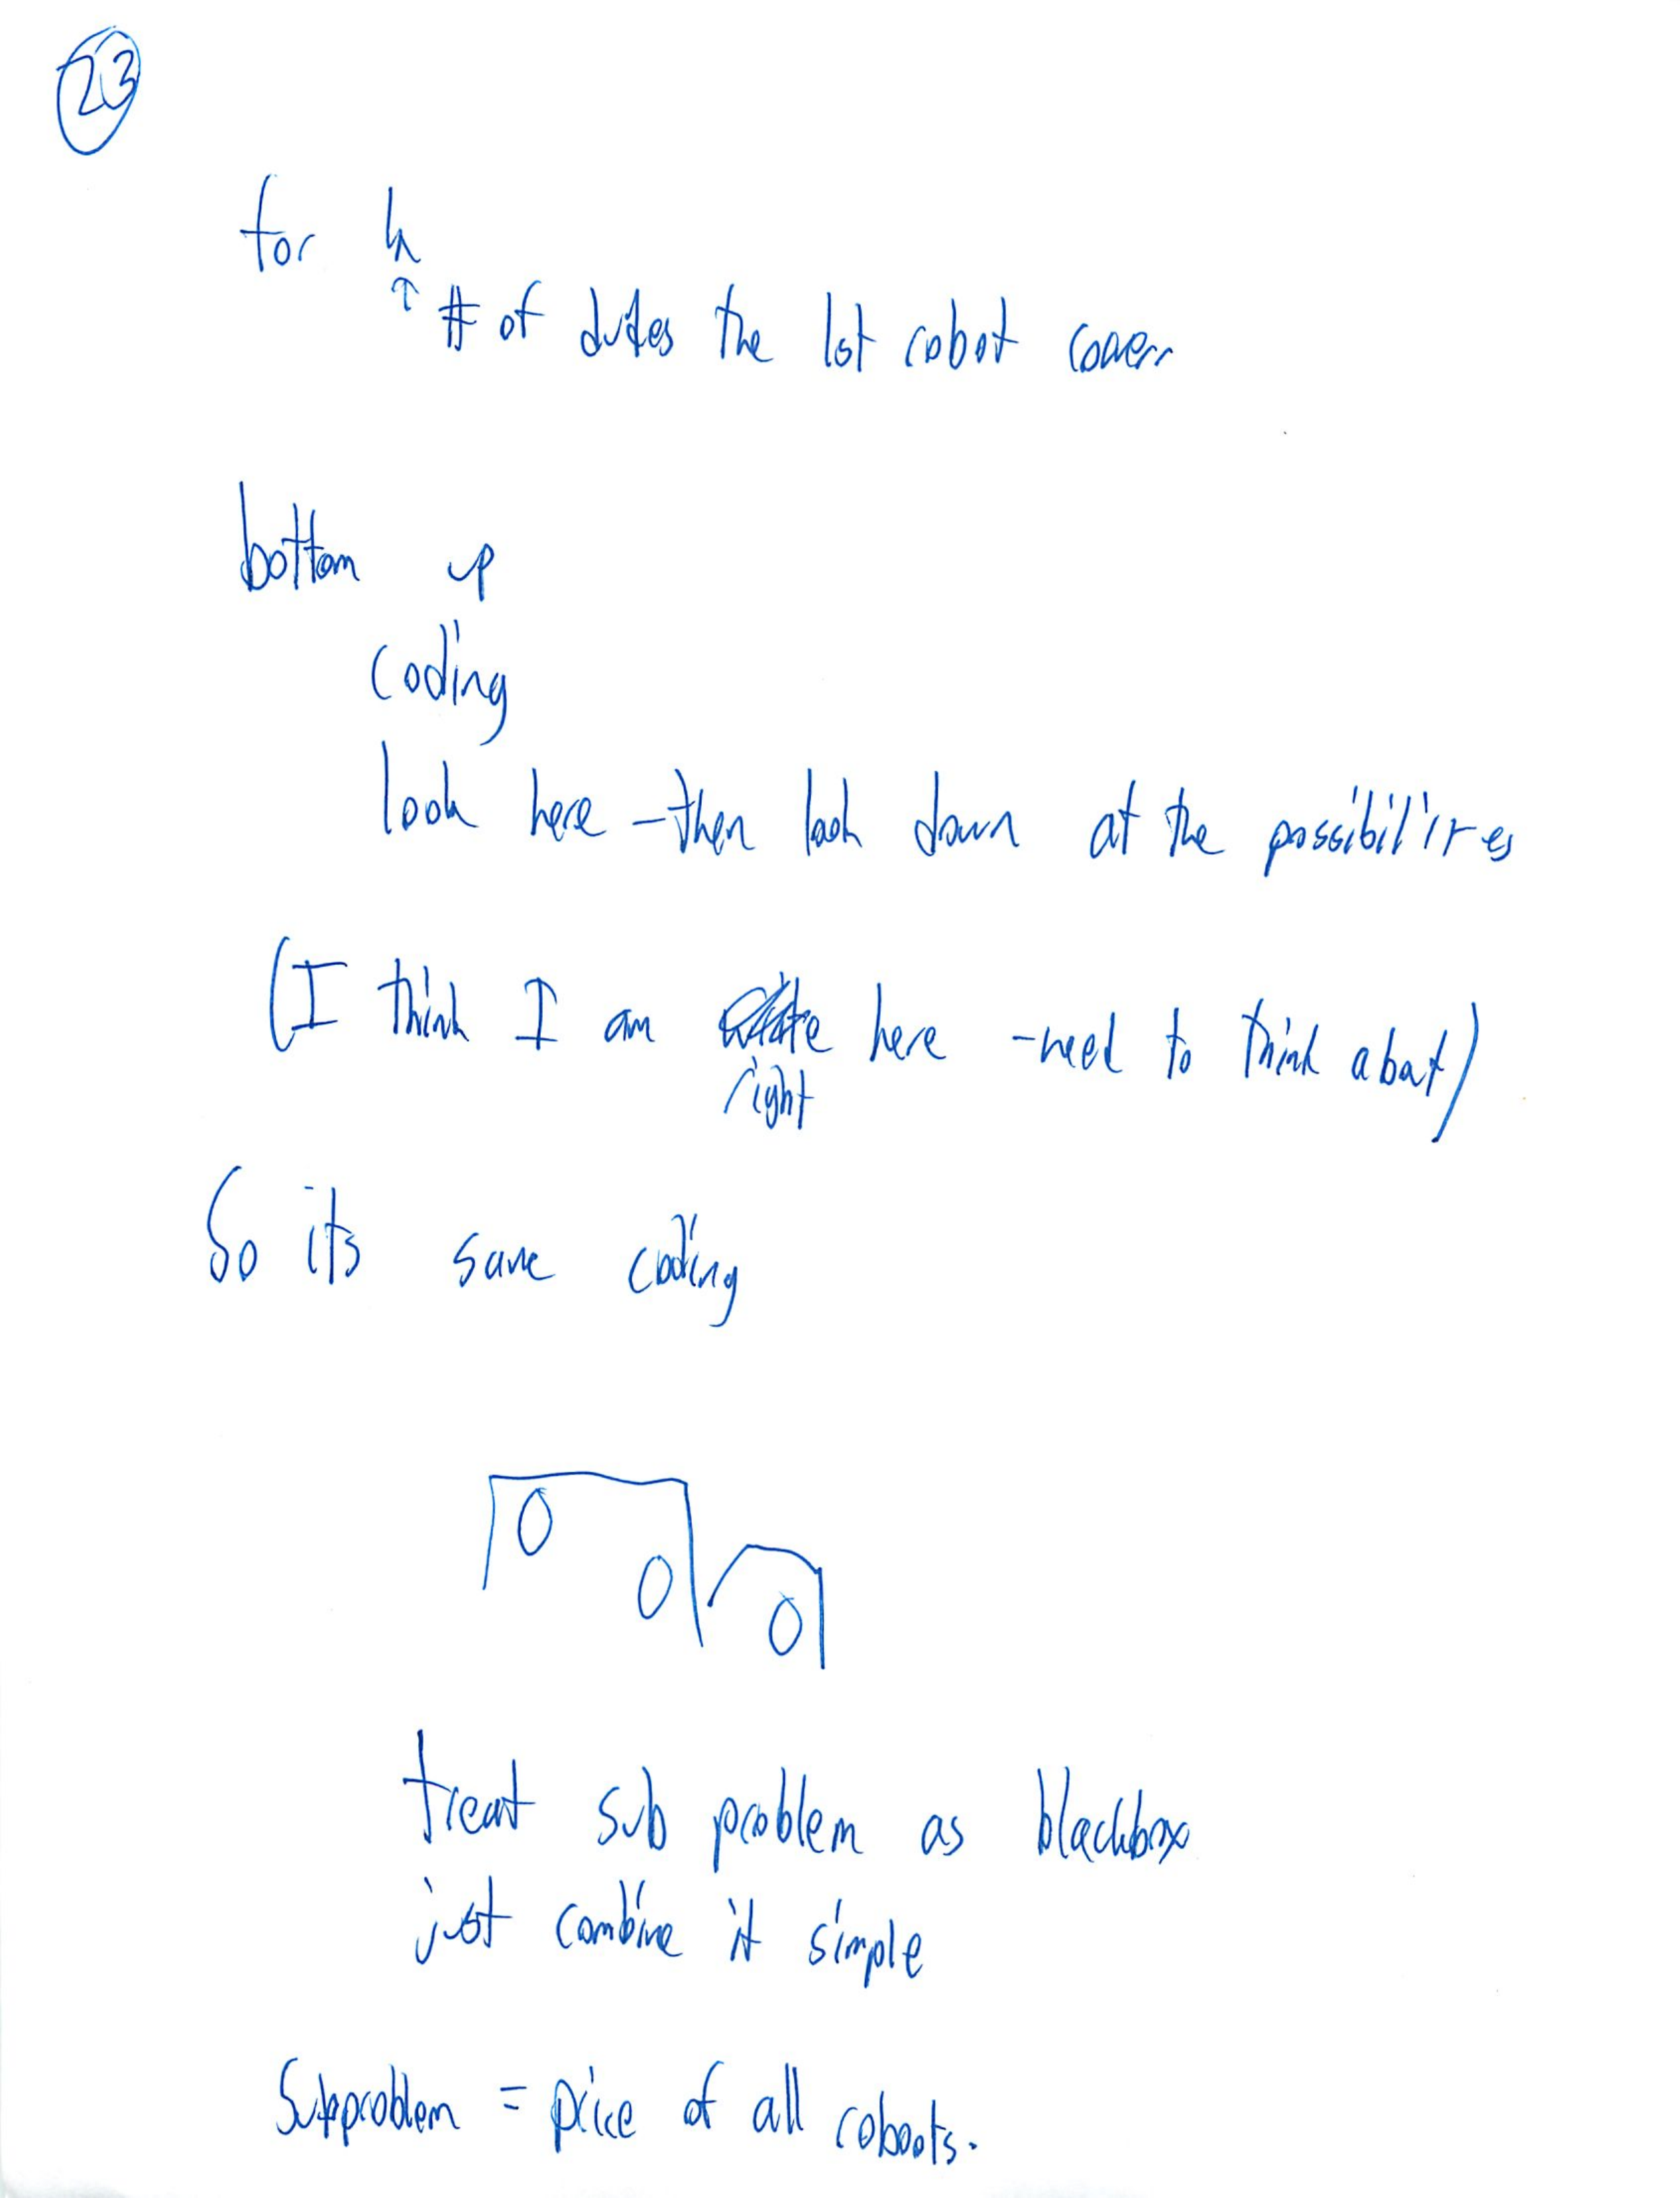 23
for k
↑ # of dudes the 1st robot covers
bottom up
coding
look here - then look down at the possibilities
(I think I am here - need to think about)
right
So its same coding
0
0
0
treat sub problem as blackbox
just combine it simple
Subproblem = price of all coboots.